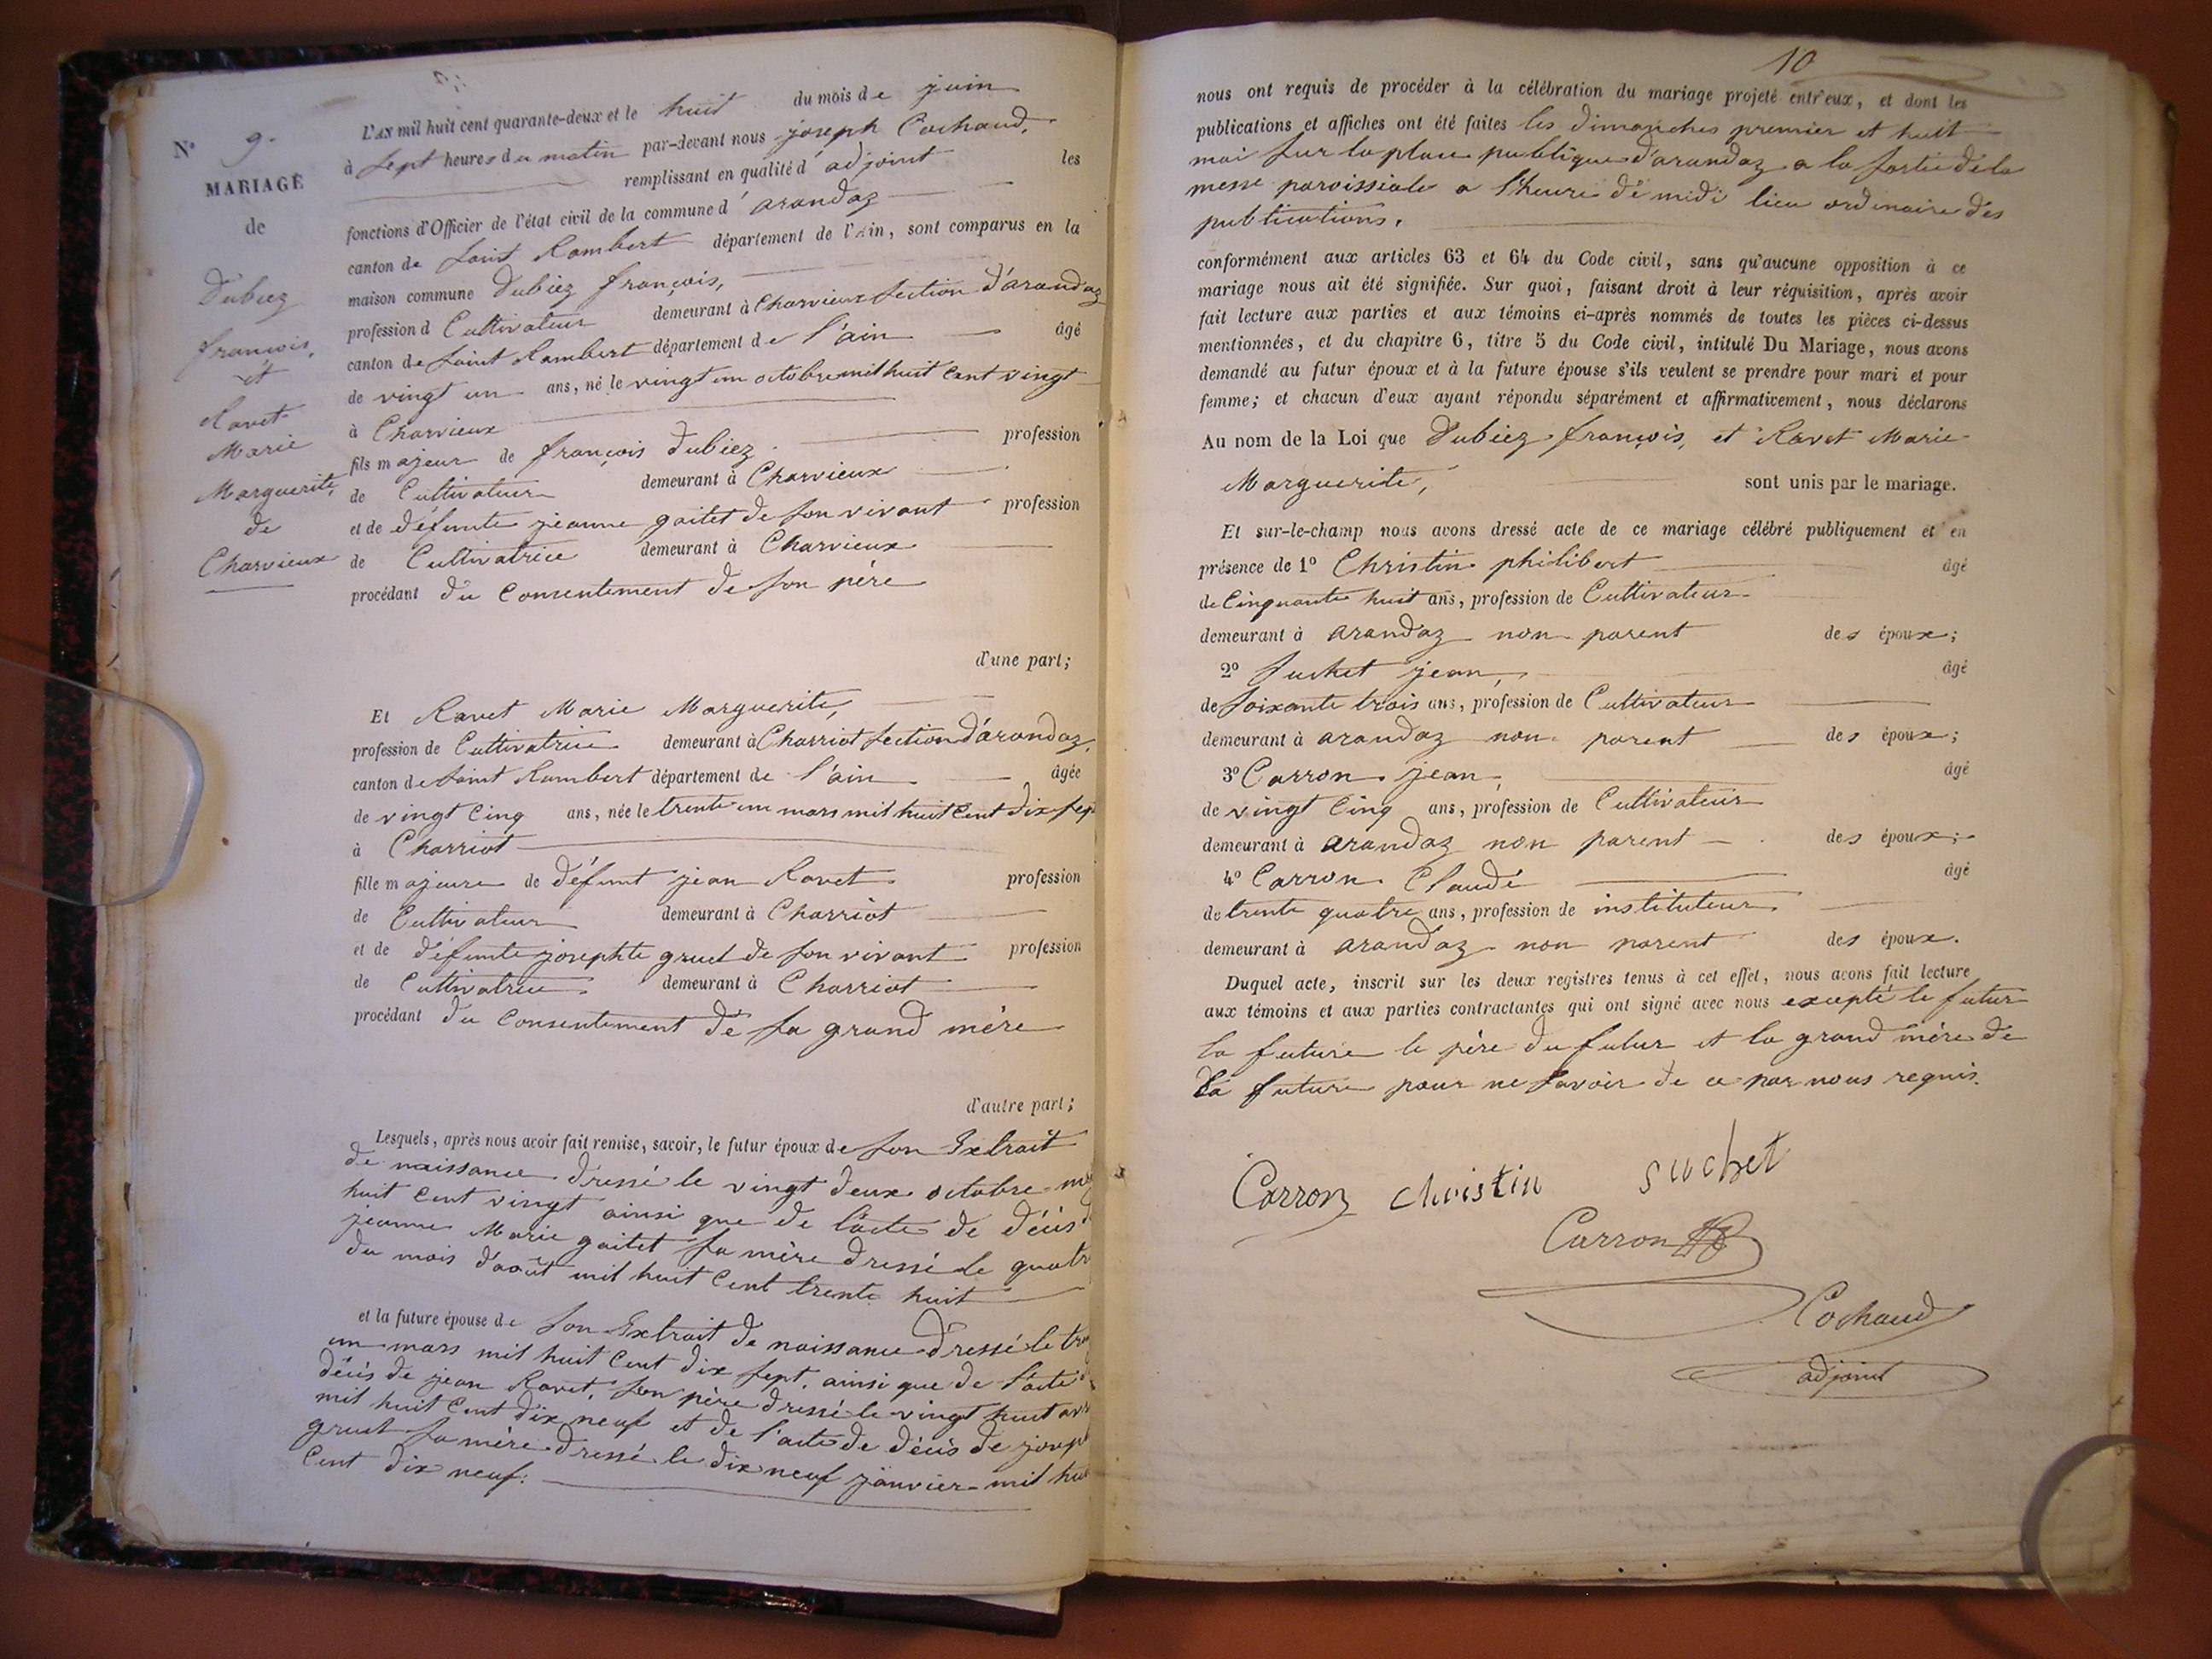 N° 9.
MARIAGE
de
Dubiez
françois,
et
Ravet
Marie
Marguerite,
de
Charvieux
L'AN mil huit cent quarante-deux et le huit du mois de juin
à sept heures du matin par-devant nous joseph Cochaud,
remplissant en qualité d'adjoint les
fonctions d'Officier de l'état civil de la commune d'arandaz
canton de saint Rambert département de l'Ain, sont comparus en la
maison commune Dubiez françois,
profession d Cultivateur demeurant à Charvieux section d'arandaz
canton de saint Rambert département de l'ain âgé
de vingt un ans, né le vingt un octobre mil huit cent vingt
à Charvieux
fils majeur de françois Dubiez profession
de Cultivateur demeurant à Charvieux
et de défunte jeanne gaitet de son vivant profession
de Cultivatrice demeurant à Charvieux
procédant du consentement de son père
d'une part;
Et Ravet Marie Marguerite,
profession de Cultivatrice demeurant à Charriot section d'arandaz,
canton de saint Rambert département de l'ain âgée
de vingt cinq ans, née le trente un mars mil huit cent dix sept
à Charriot
fille majeure de défunt jean Ravet profession
de Cultivateur demeurant à Charriot
et de défunte josephte gruet de son vivant profession
de Cultivatrice demeurant à Charriot
procédant du consentement de sa grand mère
d'autre part;
Lesquels, après nous avoir fait remise, savoir, le futur époux de son Extrait
de naissance dressé le vingt deux octobre mil
huit cent vingt ainsi que de l'acte de décès d
jeanne Marie gaitet sa mère dressé le quatr
du mois d'août mil huit cent trente huit
et la future épouse de son Extrait de naissance dressé le tren
un mars mil huit cent dix sept. ainsi que de l'acte d
décès de jean Ravet, son père dressé le vingt huit avr
mil huit cent dix neuf et de l'acte de décès de joseph
gruet sa mère dressé le dix neuf janvier mil hui
cent dix neuf.
10
nous ont requis de procéder à la célébration du mariage projeté entr'eux, et dont les
publications et affiches ont été faites les dimanches premier et huit
mai sur la place publique d'arandaz a la sortie de la
messe paroissiale a l'heure de midi lieu ordinaire des
publications.
conformément aux articles 63 et 64 du Code civil, sans qu'aucune opposition à ce
mariage nous ait été signifiée. Sur quoi, faisant droit à leur réquisition, après avoir
fait lecture aux parties et aux témoins ci-après nommés de toutes les pièces ci-dessus
mentionnées, et du chapitre 6, titre 5 du Code civil, intitulé Du Mariage, nous avons
demandé au futur époux et à la future épouse s'ils veulent se prendre pour mari et pour
femme; et chacun d'eux ayant répondu séparément et affirmativement, nous déclarons
Au nom de la Loi que Dubiez françois, et Ravet Marie
Marguerite, sont unis par le mariage.
Et sur-le-champ nous avons dressé acte de ce mariage célébré publiquement et en
présence de 1° Christin philibert âgé
de Cinquante huit ans, profession de Cultivateur
demeurant à arandaz non parent des époux;
2° Suchet jean, âgé
de soixante trois ans, profession de Cultivateur
demeurant à arandaz non parent des époux;
3° Carron jean, âgé
de vingt cinq ans, profession de Cultivateur
demeurant à arandaz non parent des époux;
4° Carron Claude âgé
de trente quatre ans, profession de instituteur
demeurant à arandaz non parent des époux.
Duquel acte, inscrit sur les deux registres tenus à cet effet, nous avons fait lecture
aux témoins et aux parties contractantes qui ont signé avec nous excepté le futur
la future le père du futur et la grand mère de
la future pour ne savoir de ce par nous requis.
Carron christin suchet
Carron
Cochaud
adjoint